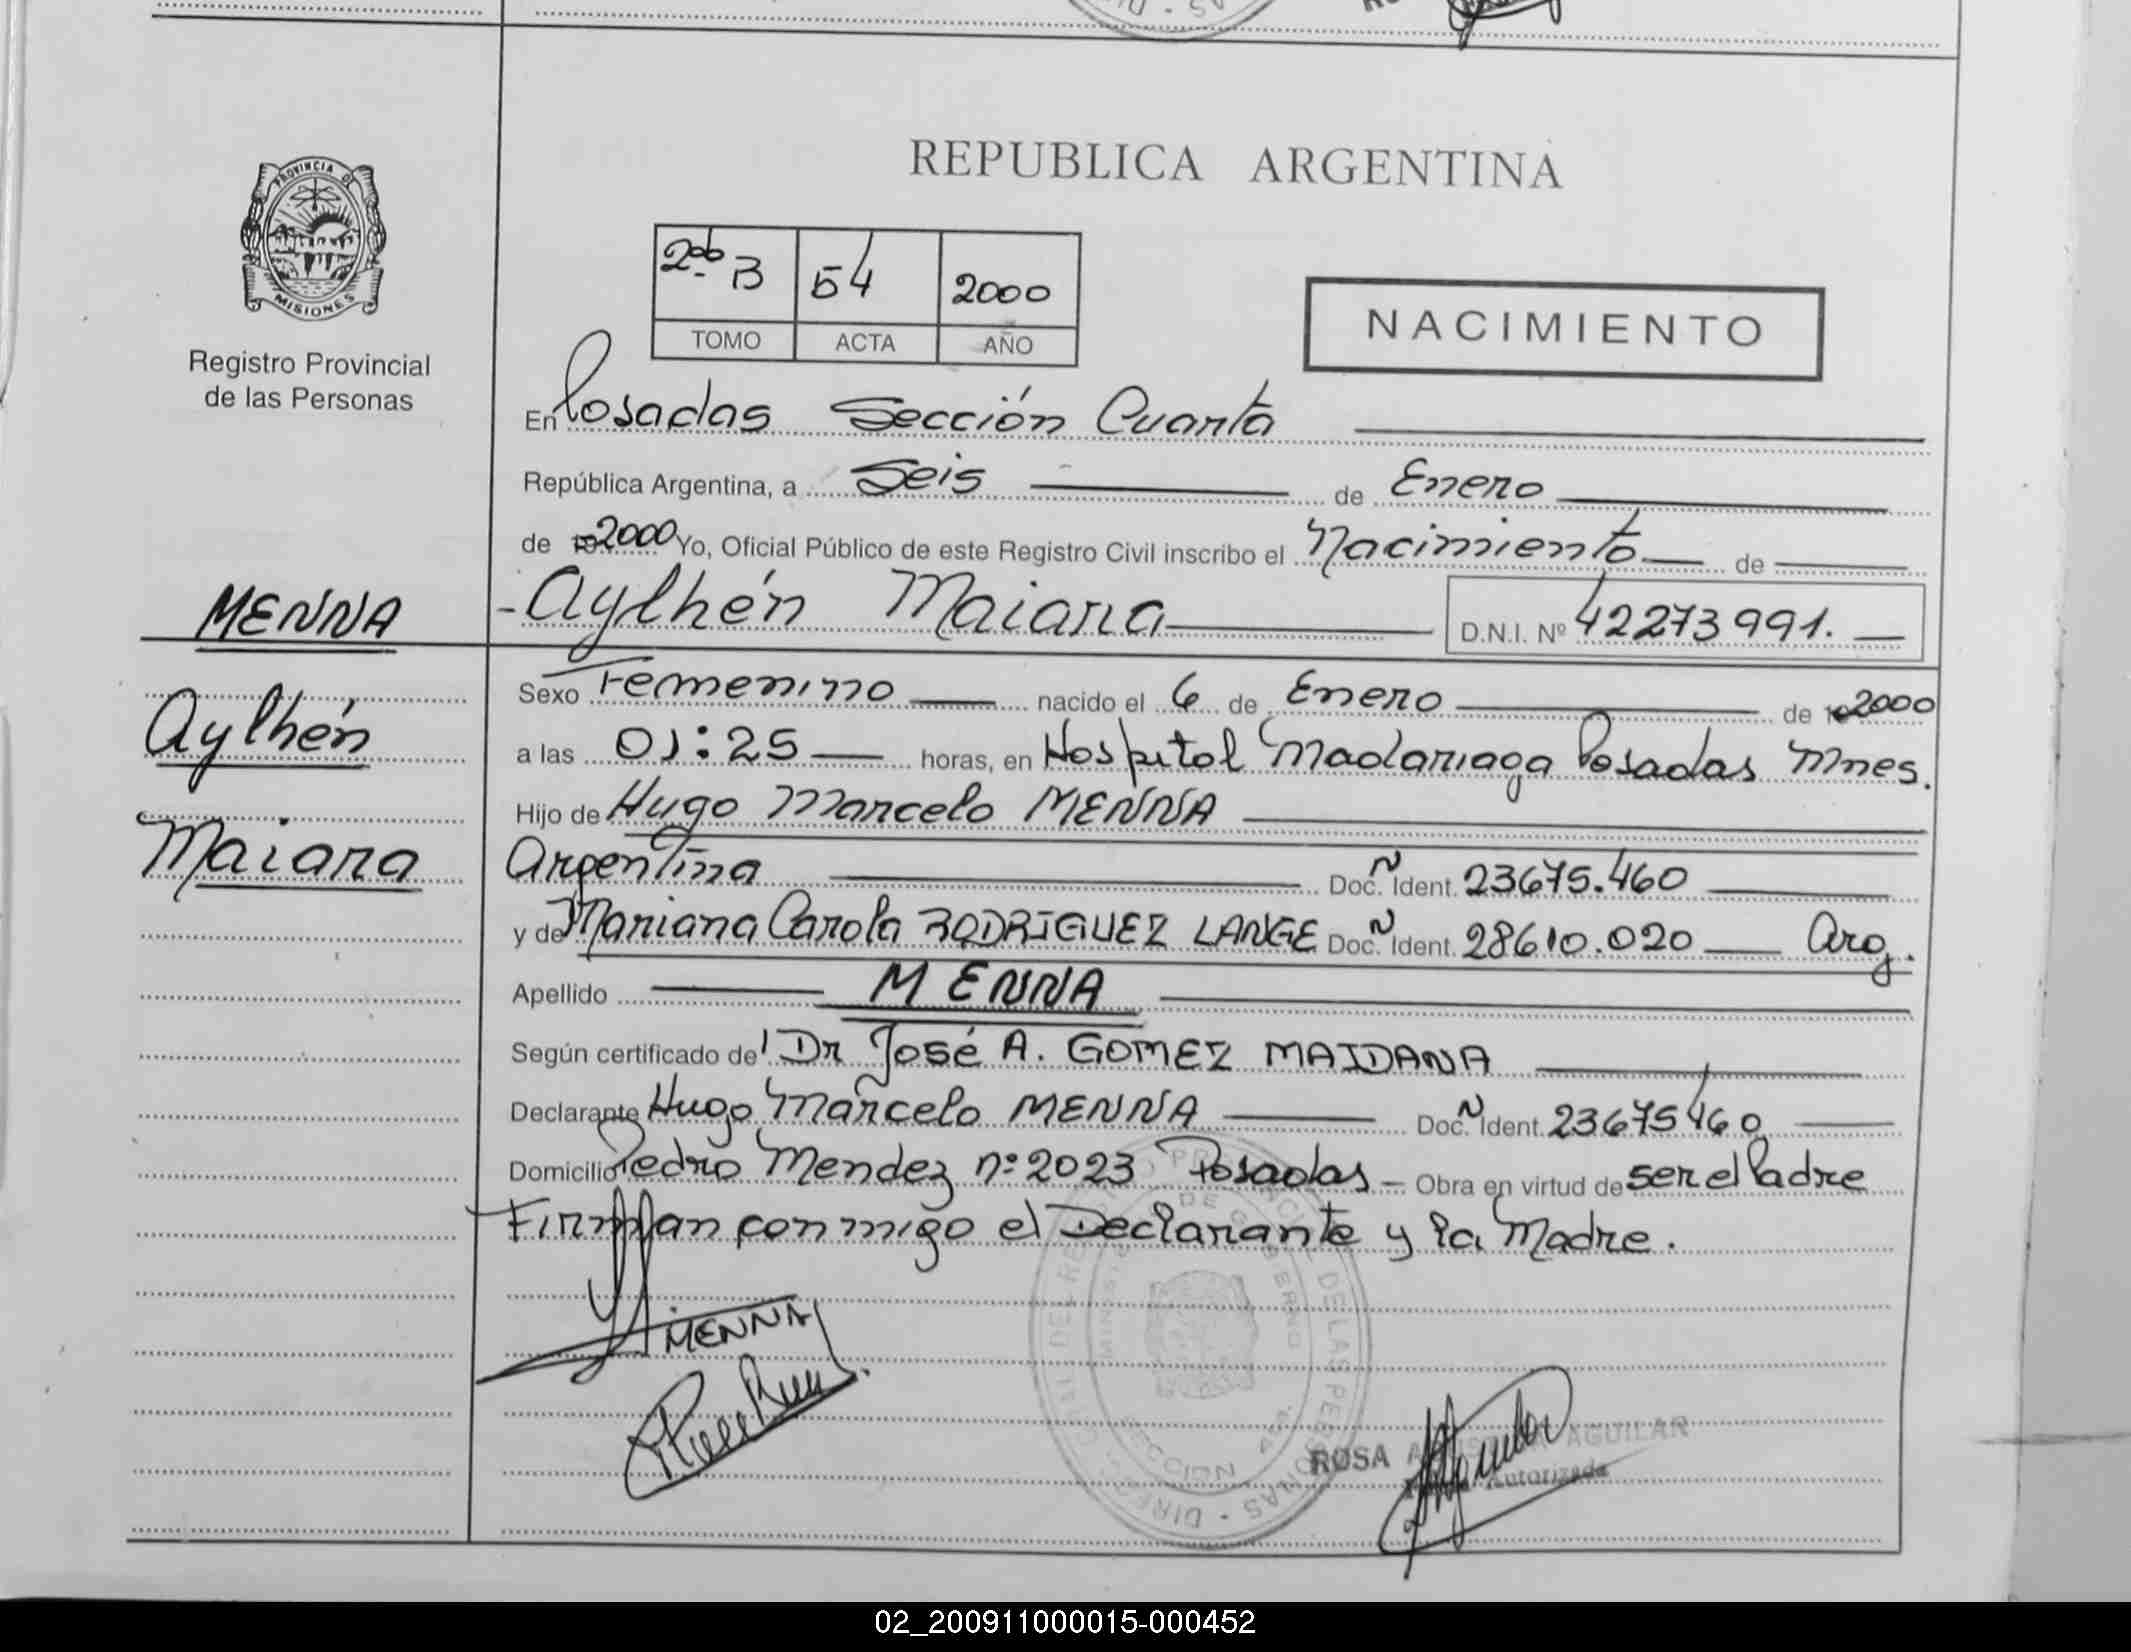 REPUBLICA ARGENTINA
PROVINCIA DE
MISIONES
Registro Provincial
de las Personas
2do B 54 2000
TOMO ACTA AÑO
NACIMIENTO
En Posadas Sección Cuarta
República Argentina, a Seis de Enero
de 2000 Yo, Oficial Público de este Registro Civil inscribo el Nacimiento de
MENNA
Aylhén
Maiana
- Aylhén Maiana D.N.I. Nº 42273991.
Sexo Femenino nacido el 6 de Enero de 2000
a las 01:25 horas, en Hospital Madariaga Posadas Mnes.
Hijo de Hugo Marcelo MENNA
Argentina Doc. N Ident. 23675.460
y de Mariana Carola RODRIGUEZ LANGE Doc. N Ident. 28610.020 Arg.
Apellido MENNA
Según certificado de Dr José A. GOMEZ MAIDANA
Declarante Hugo Marcelo MENNA Doc. N Ident. 23675460
Domicilio Pedro Mendez nº 2023 Posadas - Obra en virtud de ser el Padre
Firman conmigo el Declarante y la Madre.
MENNA
ROSA AGUILAR
Autorizada
02_200911000015-000452